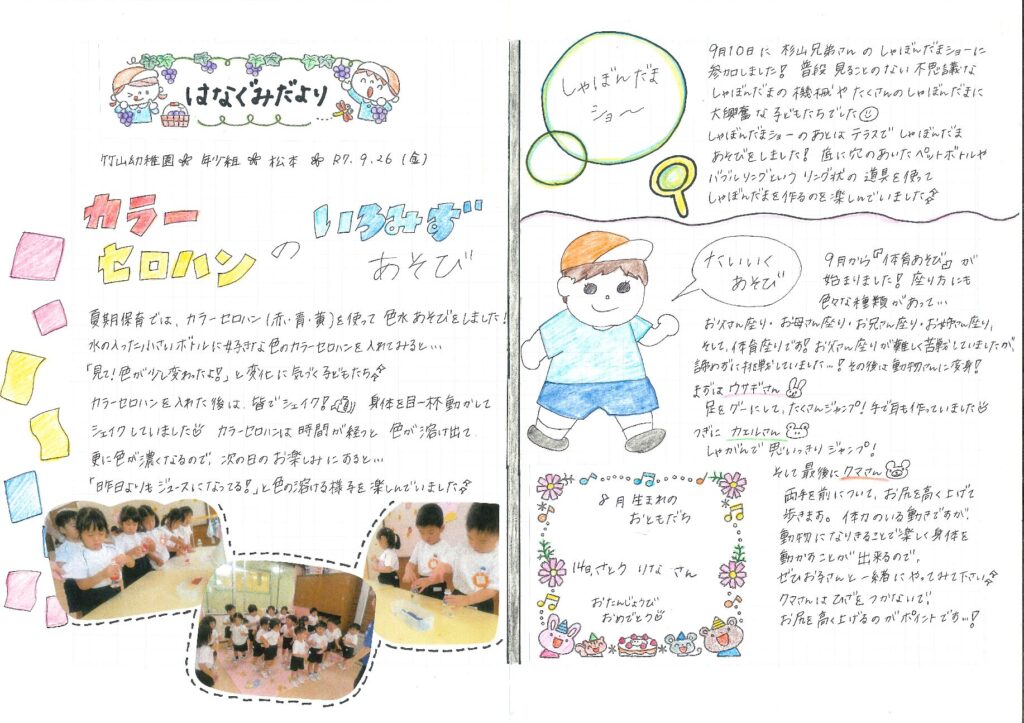 はなぐみだより
竹山幼稚園 年少組 松本 R7.9.26(金)
カラー
セロハン
の
いろみず
あそび
夏期保育では、カラーセロハン(赤・青・黄)を使って色水あそびをしました!
水の入った小さいボトルに好きな色のカラーセロハンを入れてみると…
「見て!色が少し変わったよ!」と変化に気づく子どもたち
カラーセロハンを入れた後は、皆でシェイク! 身体を目一杯動かして
シェイクしていました カラーセロハンは時間が経つと色が溶け出て、
更に色が濃くなるので、次の日のお楽しみにあると…
「昨日よりもジュースになってる!」と色の溶ける様子を楽しんでいました
しゃぼんだま
ショー
9月10日に杉山兄弟さんのしゃぼんだまショーに
参加しました! 普段見ることのない不思議な
しゃぼんだまの機械やたくさんのしゃぼんだまに
大興奮な子どもたちでした
しゃぼんだまショーのあとはテラスでしゃぼんだま
あそびをしました! 底に穴のあいたペットボトルや
バブルリングというリング状の道具を使って
しゃぼんだまを作るのを楽しんでいました
たいいく
あそび
9月から『体育あそび』が
始まりました! 座り方にも
色々な種類があって…
お父さん座り・お母さん座り・お兄さん座り・お姉さん座り、
そして、体育座りです!お父さん座りが難しく苦戦していましたが、
諦めずに挑戦していました…!その後は動物さんに変身!
まずはウサギさん
足をグーにして、たくさんジャンプ!手で耳も作っていました
つぎにカエルさん
しゃがんで思いっきりジャンプ!
そして最後にクマさん
両手を前について、お尻を高く上げて
歩きます。体力のいる動きですが、
動物になりきることで楽しく身体を
動かすことが出来るので、
ぜひお子さんと一緒にやってみて下さい
クマさんはひざをつかないで、
お尻を高く上げるのがポイントです…!
8月生まれの
おともだち
14日、さとう りな さん
おたんじょうび
おめでとう